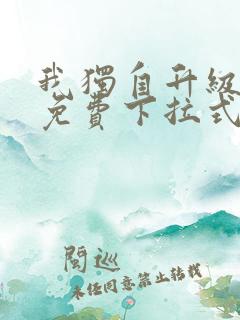 我獨自升級
免費下拉式
閱巡
未任同意禁止转载